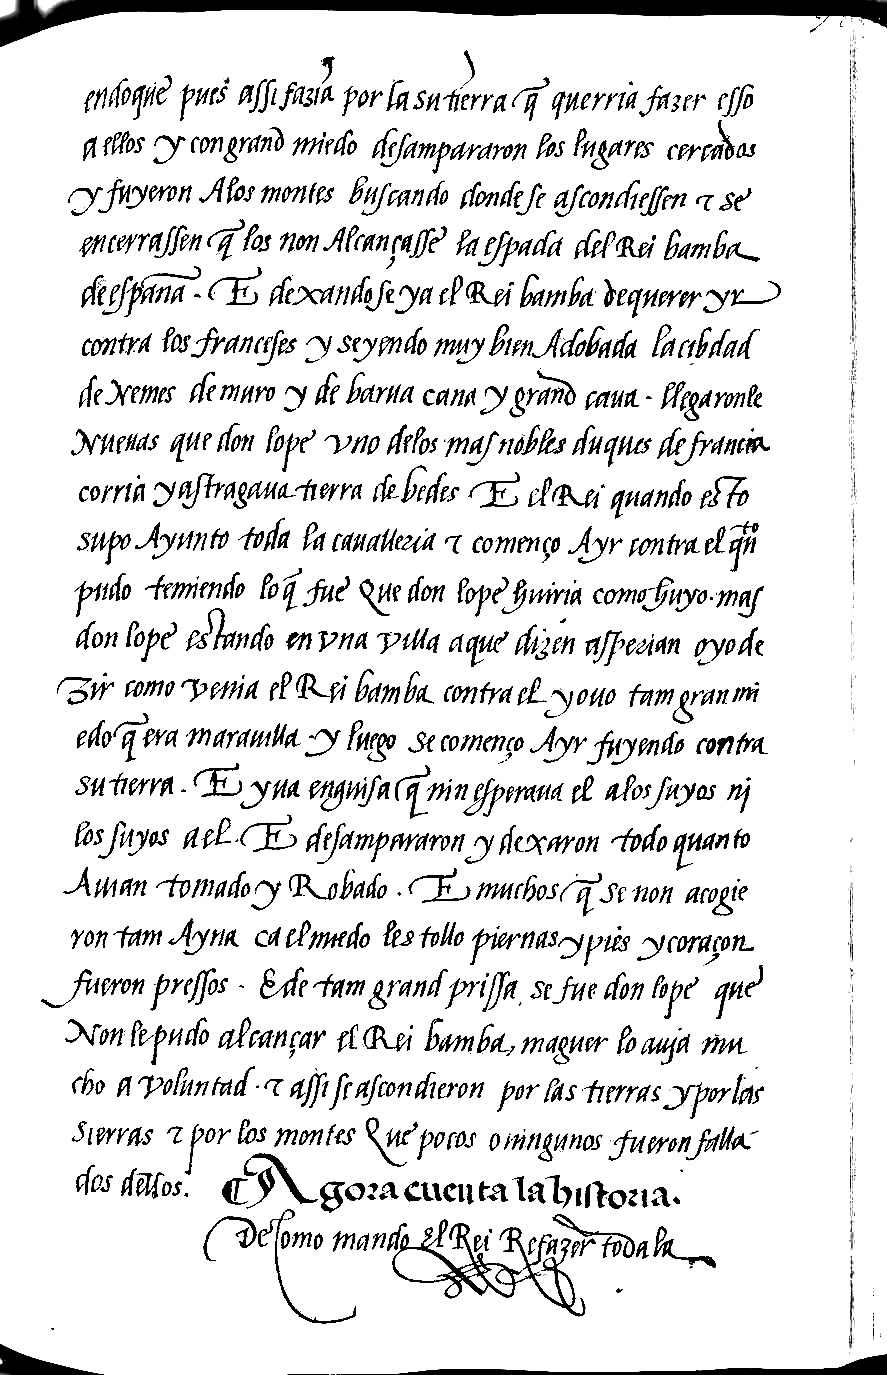 endoque pues assi fazia por la su tierra q̃ querria fazer esso
a ellos y con grand miedo desampararon los lugares cercados
y fuyeron Alos montes buscando donde se ascondiessen τ se
encerrassen q̃ los non Alcançasse la espada del Rei bamba
de españa . E dexandose ya el Rei bamba de querer yr
contra los franceses y seyendo muy bien Adobada la cibdad
de Nemes de muro y de barua cana y grand çaua . llegaronle
Nueuas que don lope vno delos mas nobles duques de francia
corria y astragaua tierra de bedes E el Rei quando esto
supo Ayunto toda la cauallezia τ començo Ayr contra el q̃nto
pudo temiendo lo q̃ fue Que don lope huiria como huyo . mas
don lope estando en vna villa a que dizen aspezian oyo de
zir como venia el Rei bamba contra el y ouo tam gran mi
edo q̃ era marauilla . y luego se començo Ayr fuyendo contra
su tierra . E yua en guisa q̃ nin esperaua el a los suyos nj
los suyos a el . E desampararon y dexaron todo quanto
Auian tomado y Robado . E muchos q̃ se non acogie
ron tam Ayna ca el miedo les tollo piernas y pies y coraçon
fueron pressos . E de tam grand prissa se fue don lope que
Non le pudo alcançar el Rei bamba, maguer lo auja mu
cho a voluntad . τ assi se ascondieron por las tierras y por las
sierras τ por los montes Que pocos o ningunos fueron falla
dos dellos. ¶ Agora cuenta la historia.
De como mando el Rei Refazer toda la